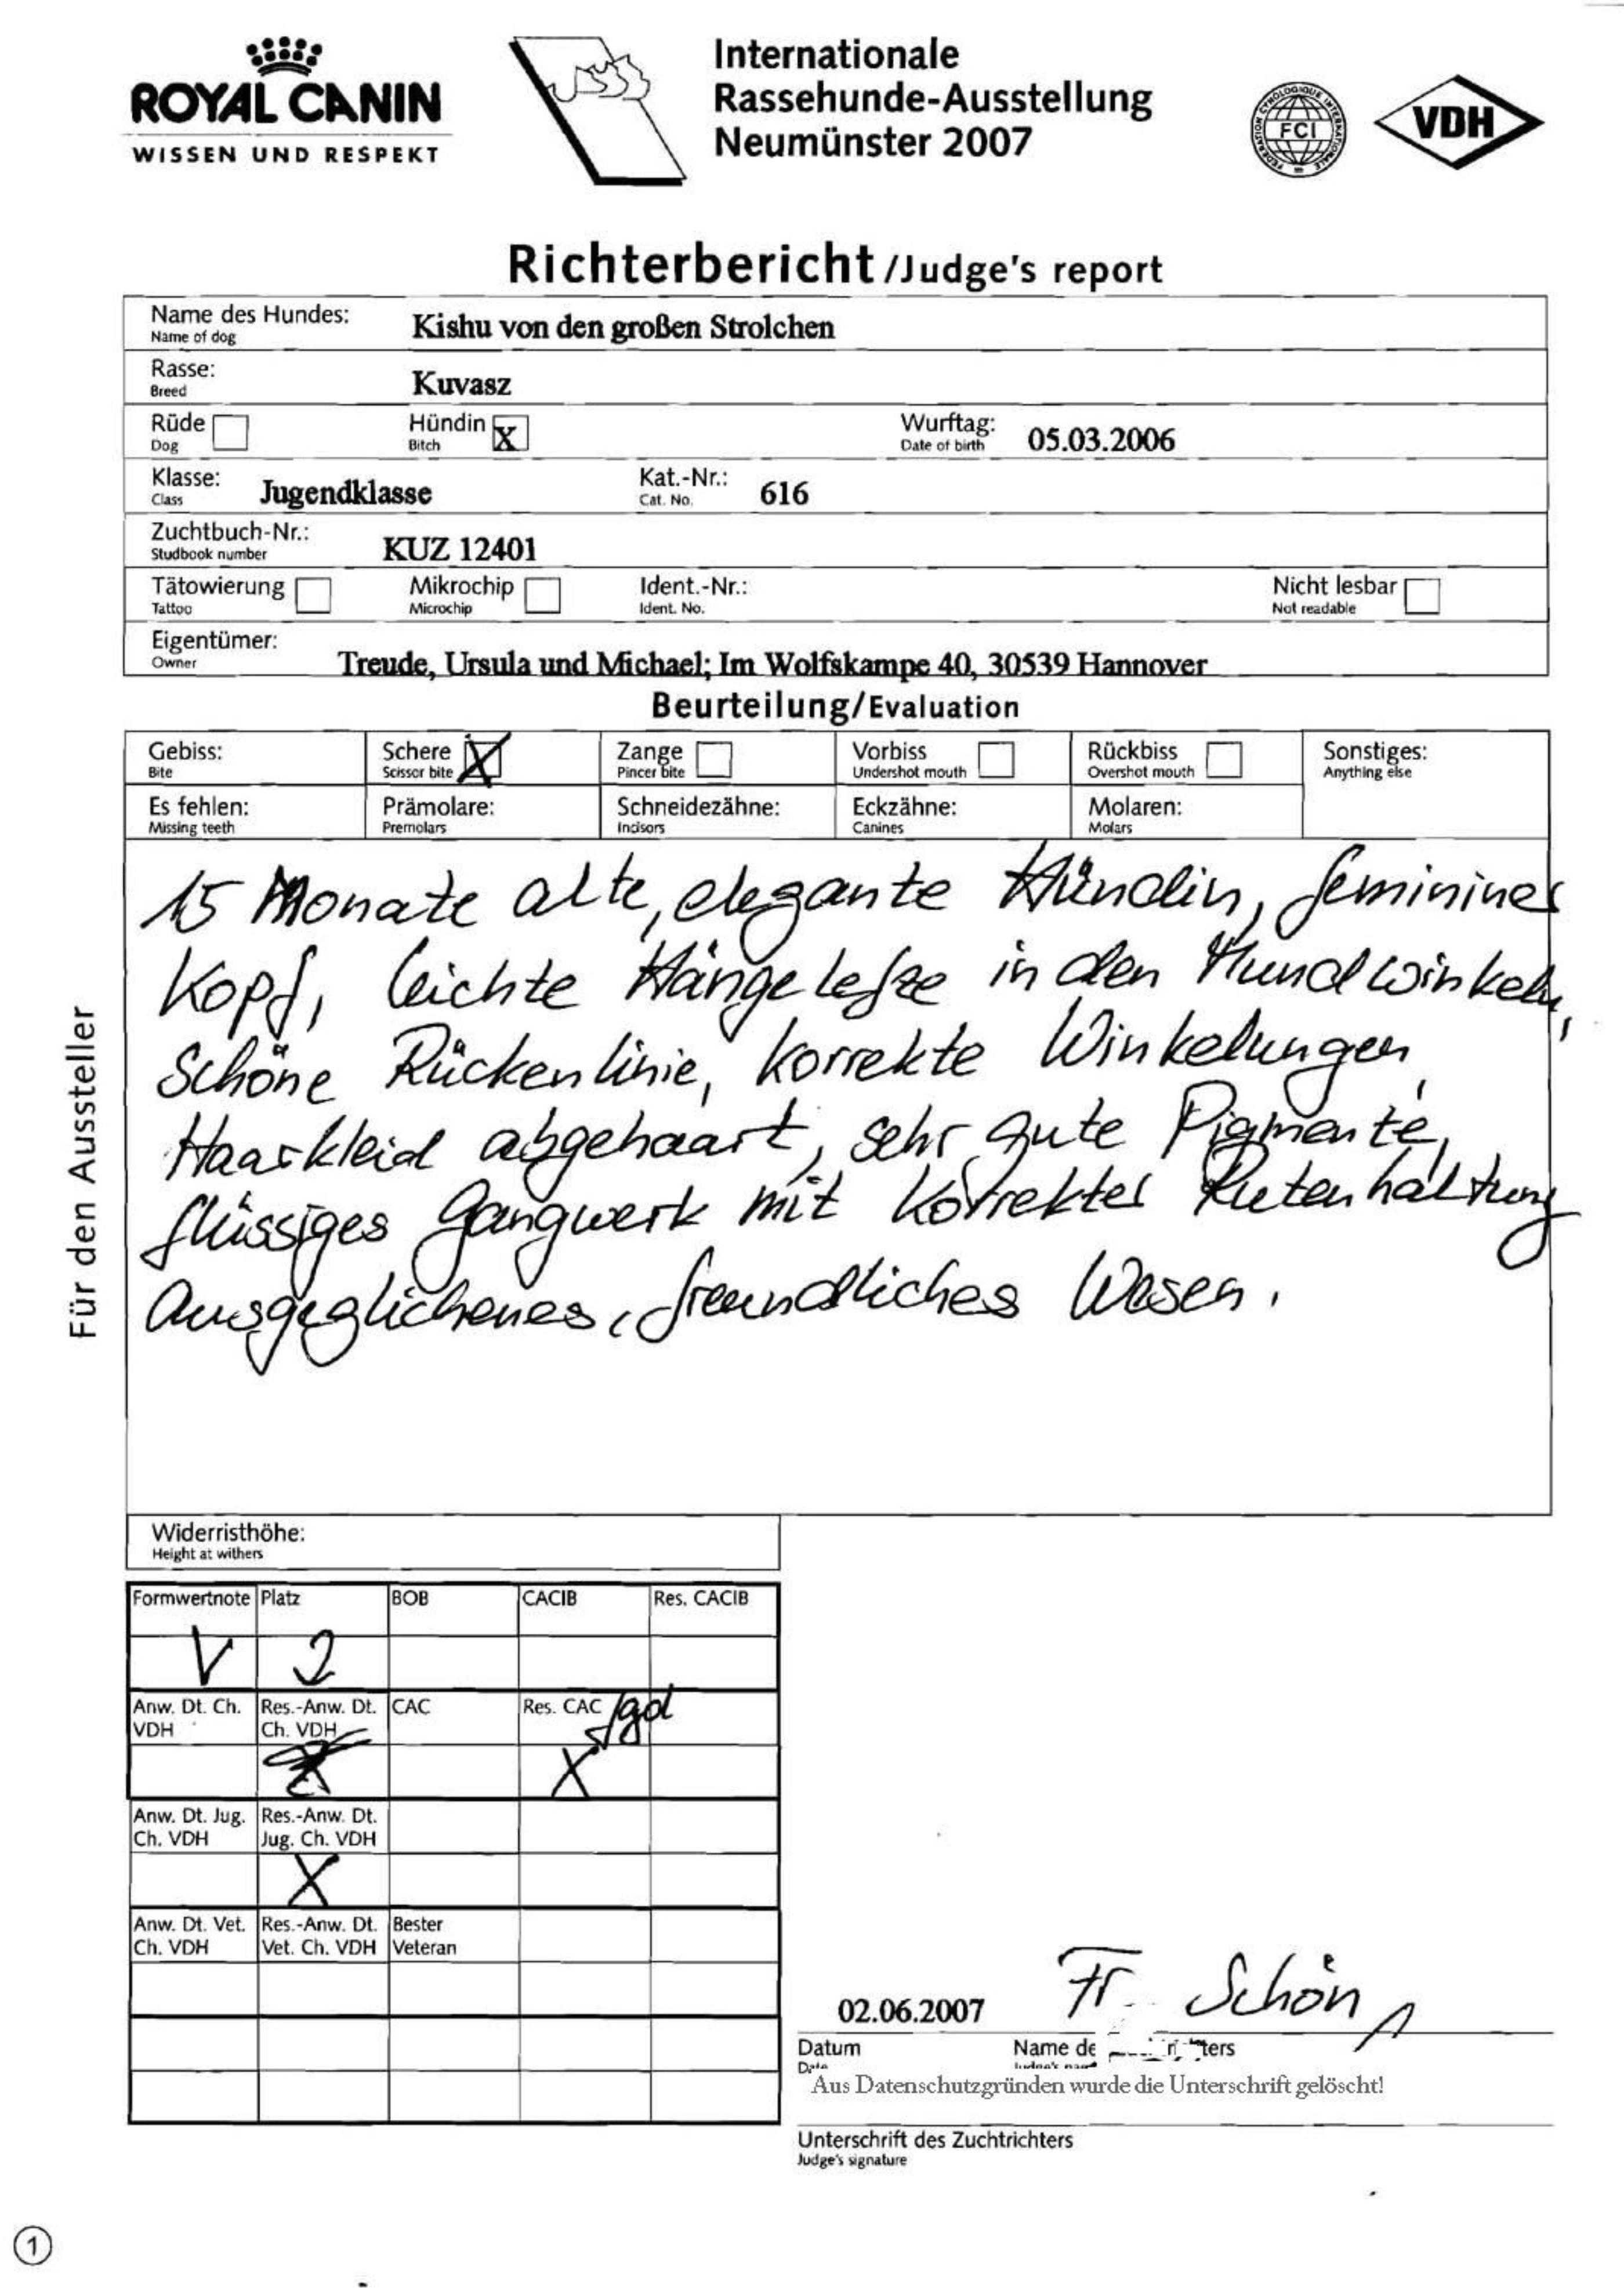 ROYAL CANIN
WISSEN UND RESPEKT
Internationale
Rassehunde-Ausstellung
Neumünster 2007
FEDERATION CYNOLOGIQUE INTERNATIONALE
FCI
VDH
Richterbericht/Judge's report
Name des Hundes: Kishu von den großen Strolchen
Name of dog
Rasse: Kuvasz
Breed
Rüde Hündin X Wurftag: 05.03.2006
Dog Bitch Date of birth
Klasse: Jugendklasse Kat.-Nr.: 616
Class Cat. No.
Zuchtbuch-Nr.: KUZ 12401
Studbook number
Tätowierung Mikrochip Ident.-Nr.: Nicht lesbar
Tattoo Microchip Ident. No. Not readable
Eigentümer: Treude, Ursula und Michael; Im Wolfskampe 40, 30539 Hannover
Owner
Beurteilung/Evaluation
Gebiss: Schere X Zange Vorbiss Rückbiss Sonstiges:
Bite Scissor bite Pincer bite Undershot mouth Overshot mouth Anything else
Es fehlen: Prämolare: Schneidezähne: Eckzähne: Molaren:
Missing teeth Premolars Incisors Canines Molars
15 Monate alte, elegante Hündin, femininer
Kopf, leichte Hängelefze in den Mundwinkeln,
Schöne Rückenlinie, korrekte Winkelungen,
Haarkleid abgehaart, sehr gute Pigmente,
flüssiges Gangwerk mit korrekter Rutenhaltung
Ausgeglichenes, freundliches Wesen.
Für den Aussteller
Widerristhöhe:
Height at withers
Formwertnote Platz BOB CACIB Res. CACIB
V 2
Anw. Dt. Ch. Res.-Anw. Dt. CAC Res. CAC Jgd
VDH Ch. VDH
X
Anw. Dt. Jug. Res.-Anw. Dt.
Ch. VDH Jug. Ch. VDH
X
Anw. Dt. Vet. Res.-Anw. Dt. Bester
Ch. VDH Vet. Ch. VDH Veteran
02.06.2007 Fr. Schön
Datum Name
Date
Aus Datenschutzgründen wurde die Unterschrift gelöscht!
Unterschrift des Zuchtrichters
Judge's signature
1